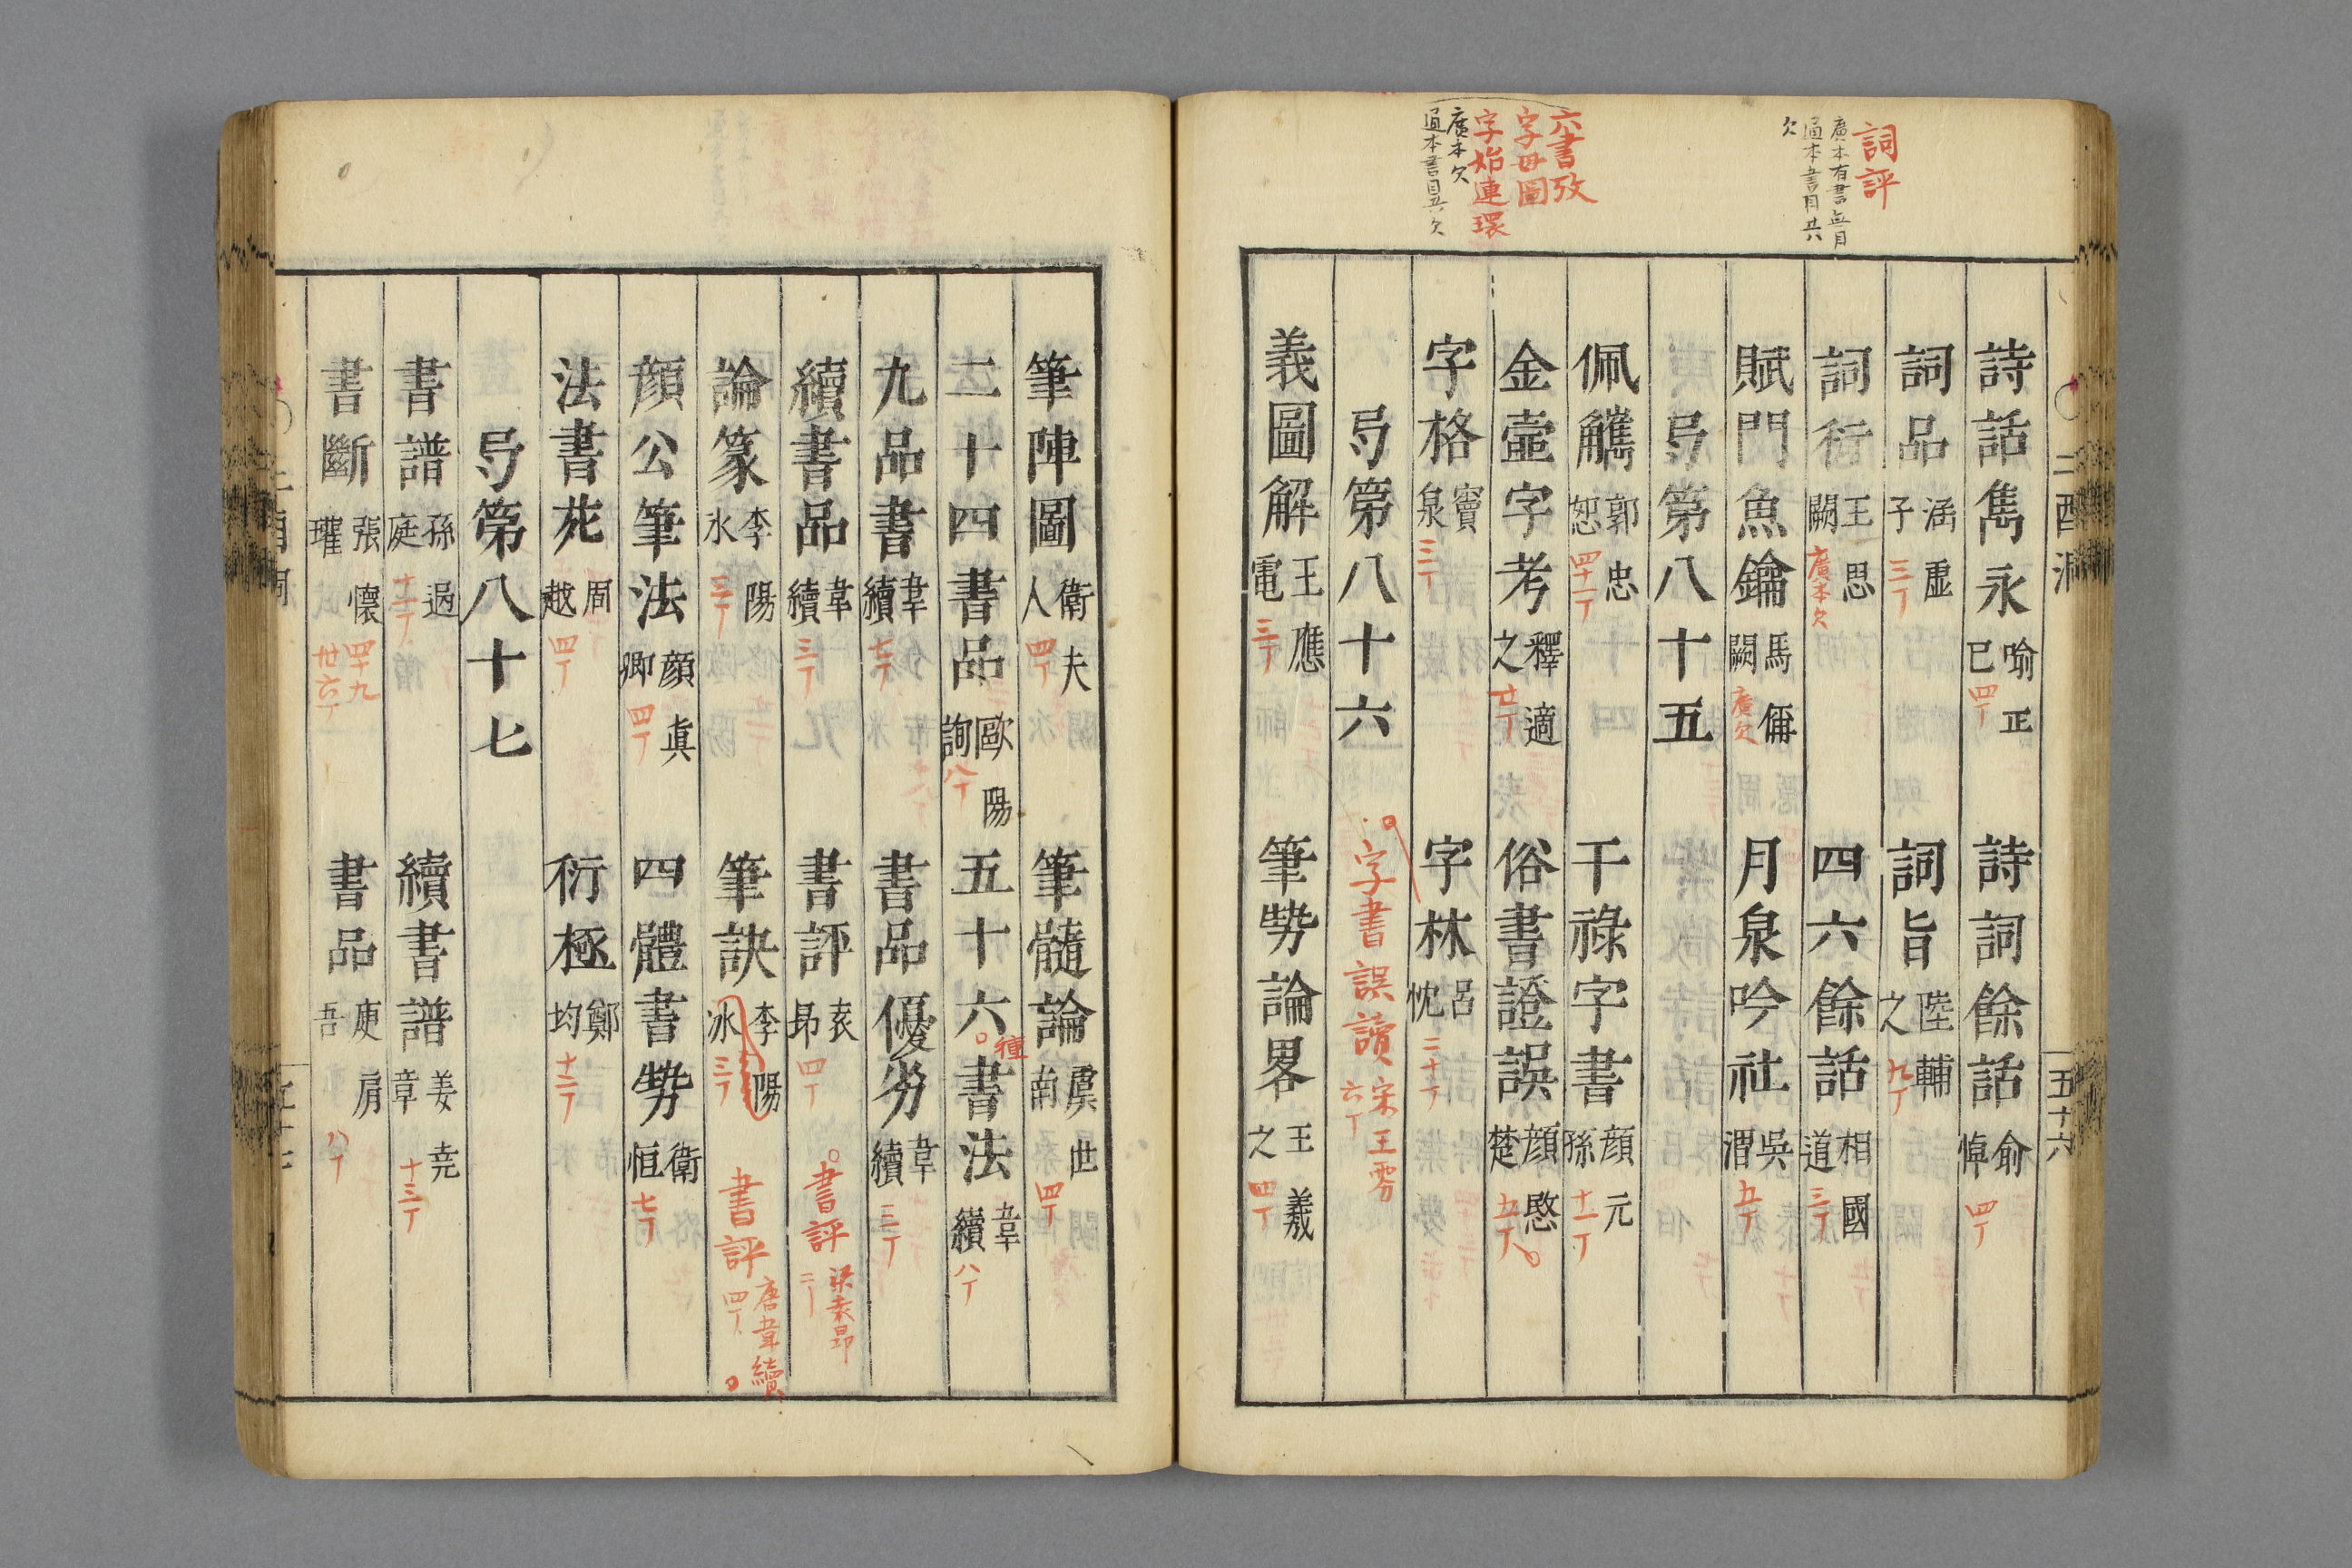 詞評
廣本有書無目
通本書目共
欠
六書攷
字母圖
字始連環
廣本欠
通本書目共欠
二酉洞
五十六
詩話雋永 喻正己 四丁 詩詞餘話 俞焯 四丁
詞品 涵虛子 三丁 詞旨 陸輔之 九丁
詞衍 王思闕 廣本欠 四六餘話 相國道 三丁
賦門魚鑰 馬偁闕 廣欠 月泉吟社 吳渭 五丁
弓第八十五
佩觿 郭忠恕 四十一丁 干祿字書 顔元孫 十一丁
金壺字考 釋適之 廿丁 俗書證誤 顔愍楚 五丁
字格 竇泉 三丁 字林 呂忱 二十丁
弓第八十六 字書誤讀 宋王雱 六丁
義圖解 王應電 三丁 筆勢論畧 王羲之 四丁
筆陣圖 衛夫人 四丁 筆髓論 虞世南 四丁
二十四書品 歐陽詢 八丁 五十六種書法 韋續 八丁
九品書 韋續 七丁 書品優劣 韋續 三丁
續書品 韋續 三丁 書評 袁昂 四丁 書評 梁袁昂 二丁
論篆 李陽氷 三丁 筆訣 李陽冰 三丁 書評 唐韋續 四丁
顔公筆法 顔真卿 四丁 四體書勢 衛恒 七丁
法書苑 周越 四丁 衍極 鄭均 十二丁
弓第八十七
書譜 孫過庭 十一丁 續書譜 姜堯章 十三丁
書斷 張懷瓘 四十九 卅六丁 書品 庾肩吾 八丁